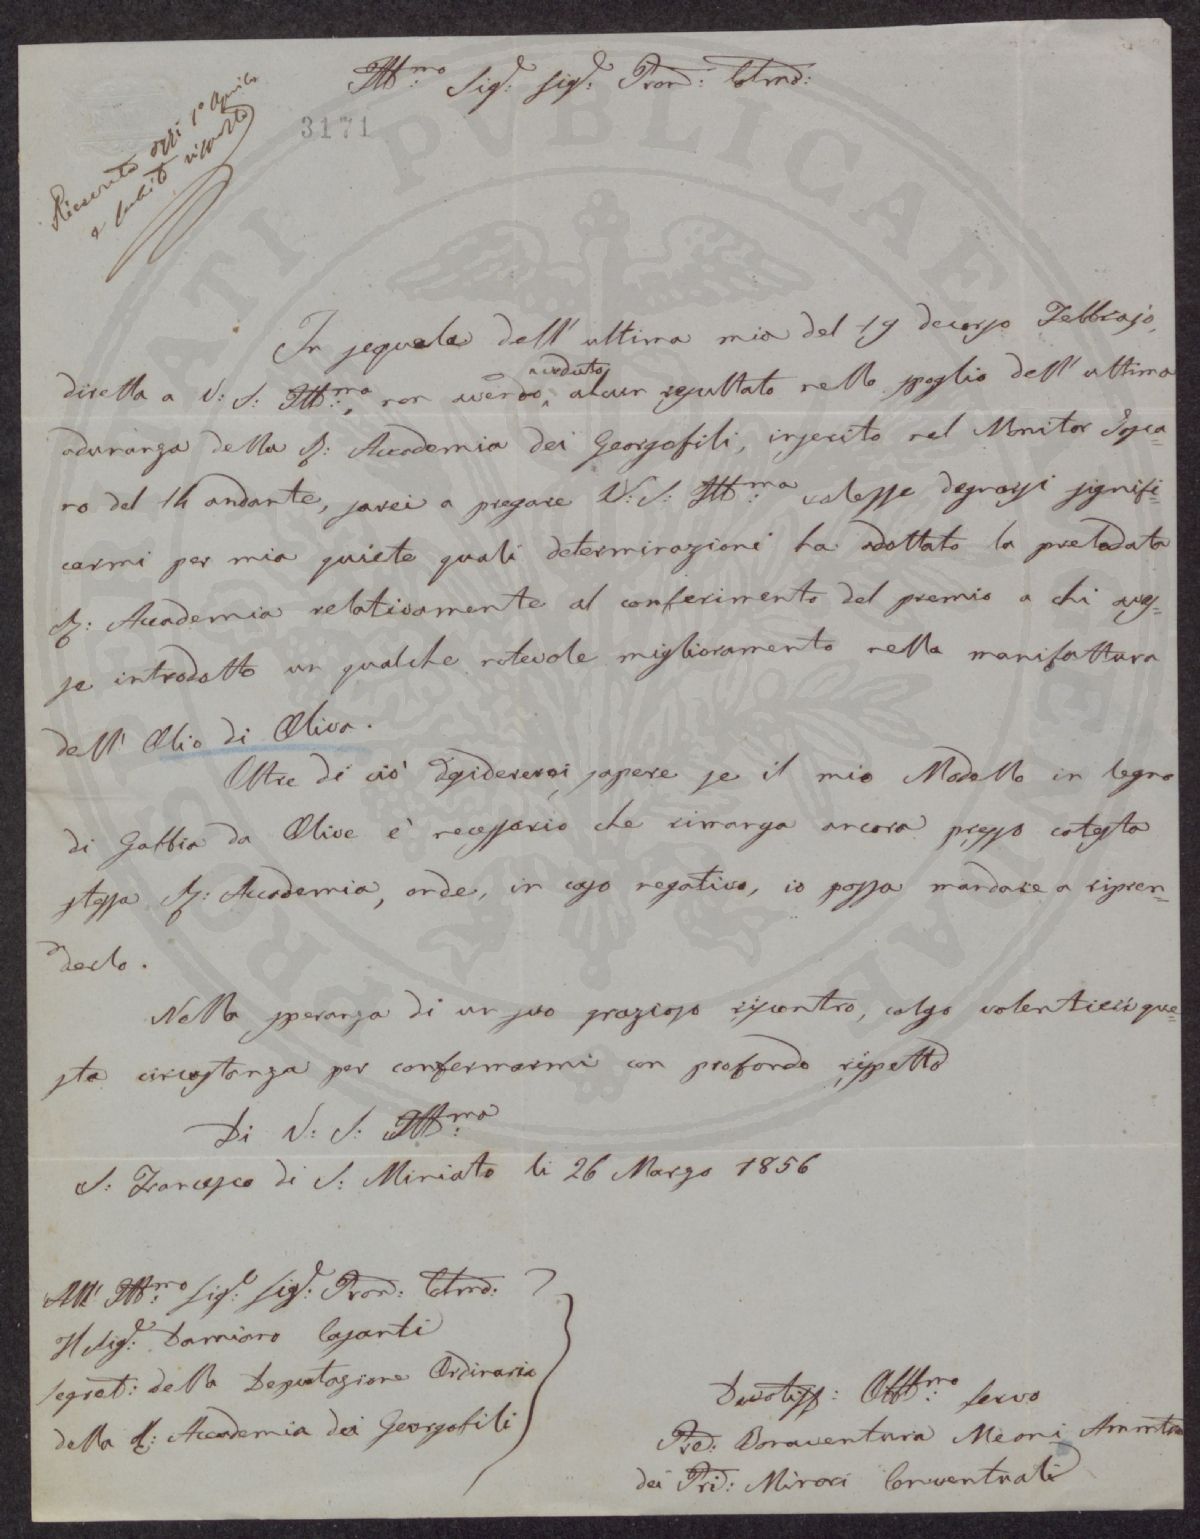 Ill.mo Sig.r Sig.r Pron: Colmo:
3171
Ricevuta oggi 1° Aprile
e subito risposto
In sequela dell' ultima mia del 19 decorso Febbrajo,
diretta a V: S: Ill:ma, non avendo veduto alcun resultato nello spoglio dell' ultima
adunanza della R: Accademia dei Georgofili, inserito nel Monitor Tosca=
no del 14 andante, sarei a pregare V: S: Ill:ma volesse degnarsi signifi=
carmi per mia quiete quali determinazioni ha adottato la prelodata
R: Accademia relativamente al conferimento del premio a chi aves=
se introdotto un qualche notevole miglioramento nella manifattura
dell' Olio di Oliva.
Oltre di ciò desidererei sapere se il mio Modello in legno
di Gabbia da Olive è necessario che rimanga ancora presso cotesta
stessa R: Accademia, onde, in caso negativo, io possa mandare a ripren=
derlo.
Nella speranza di un suo grazioso riscontro, colgo volentieri que=
sta circostanza per confermarmi con profondo rispetto
Di V: S: Ill:ma
S: Francesco di S: Miniato li 26 Marzo 1856
All' Ill:mo Sig.r Sig.r Pron: Colmo:
Il Sig.r Damiano Casanti
Segret: della Deputazione Ordinaria
della R: Accademia dei Georgofili
Devotiss: Obb:mo Servo
Pre: Bonaventura Meoni Ammre
dei Pri: Minori Conventuali